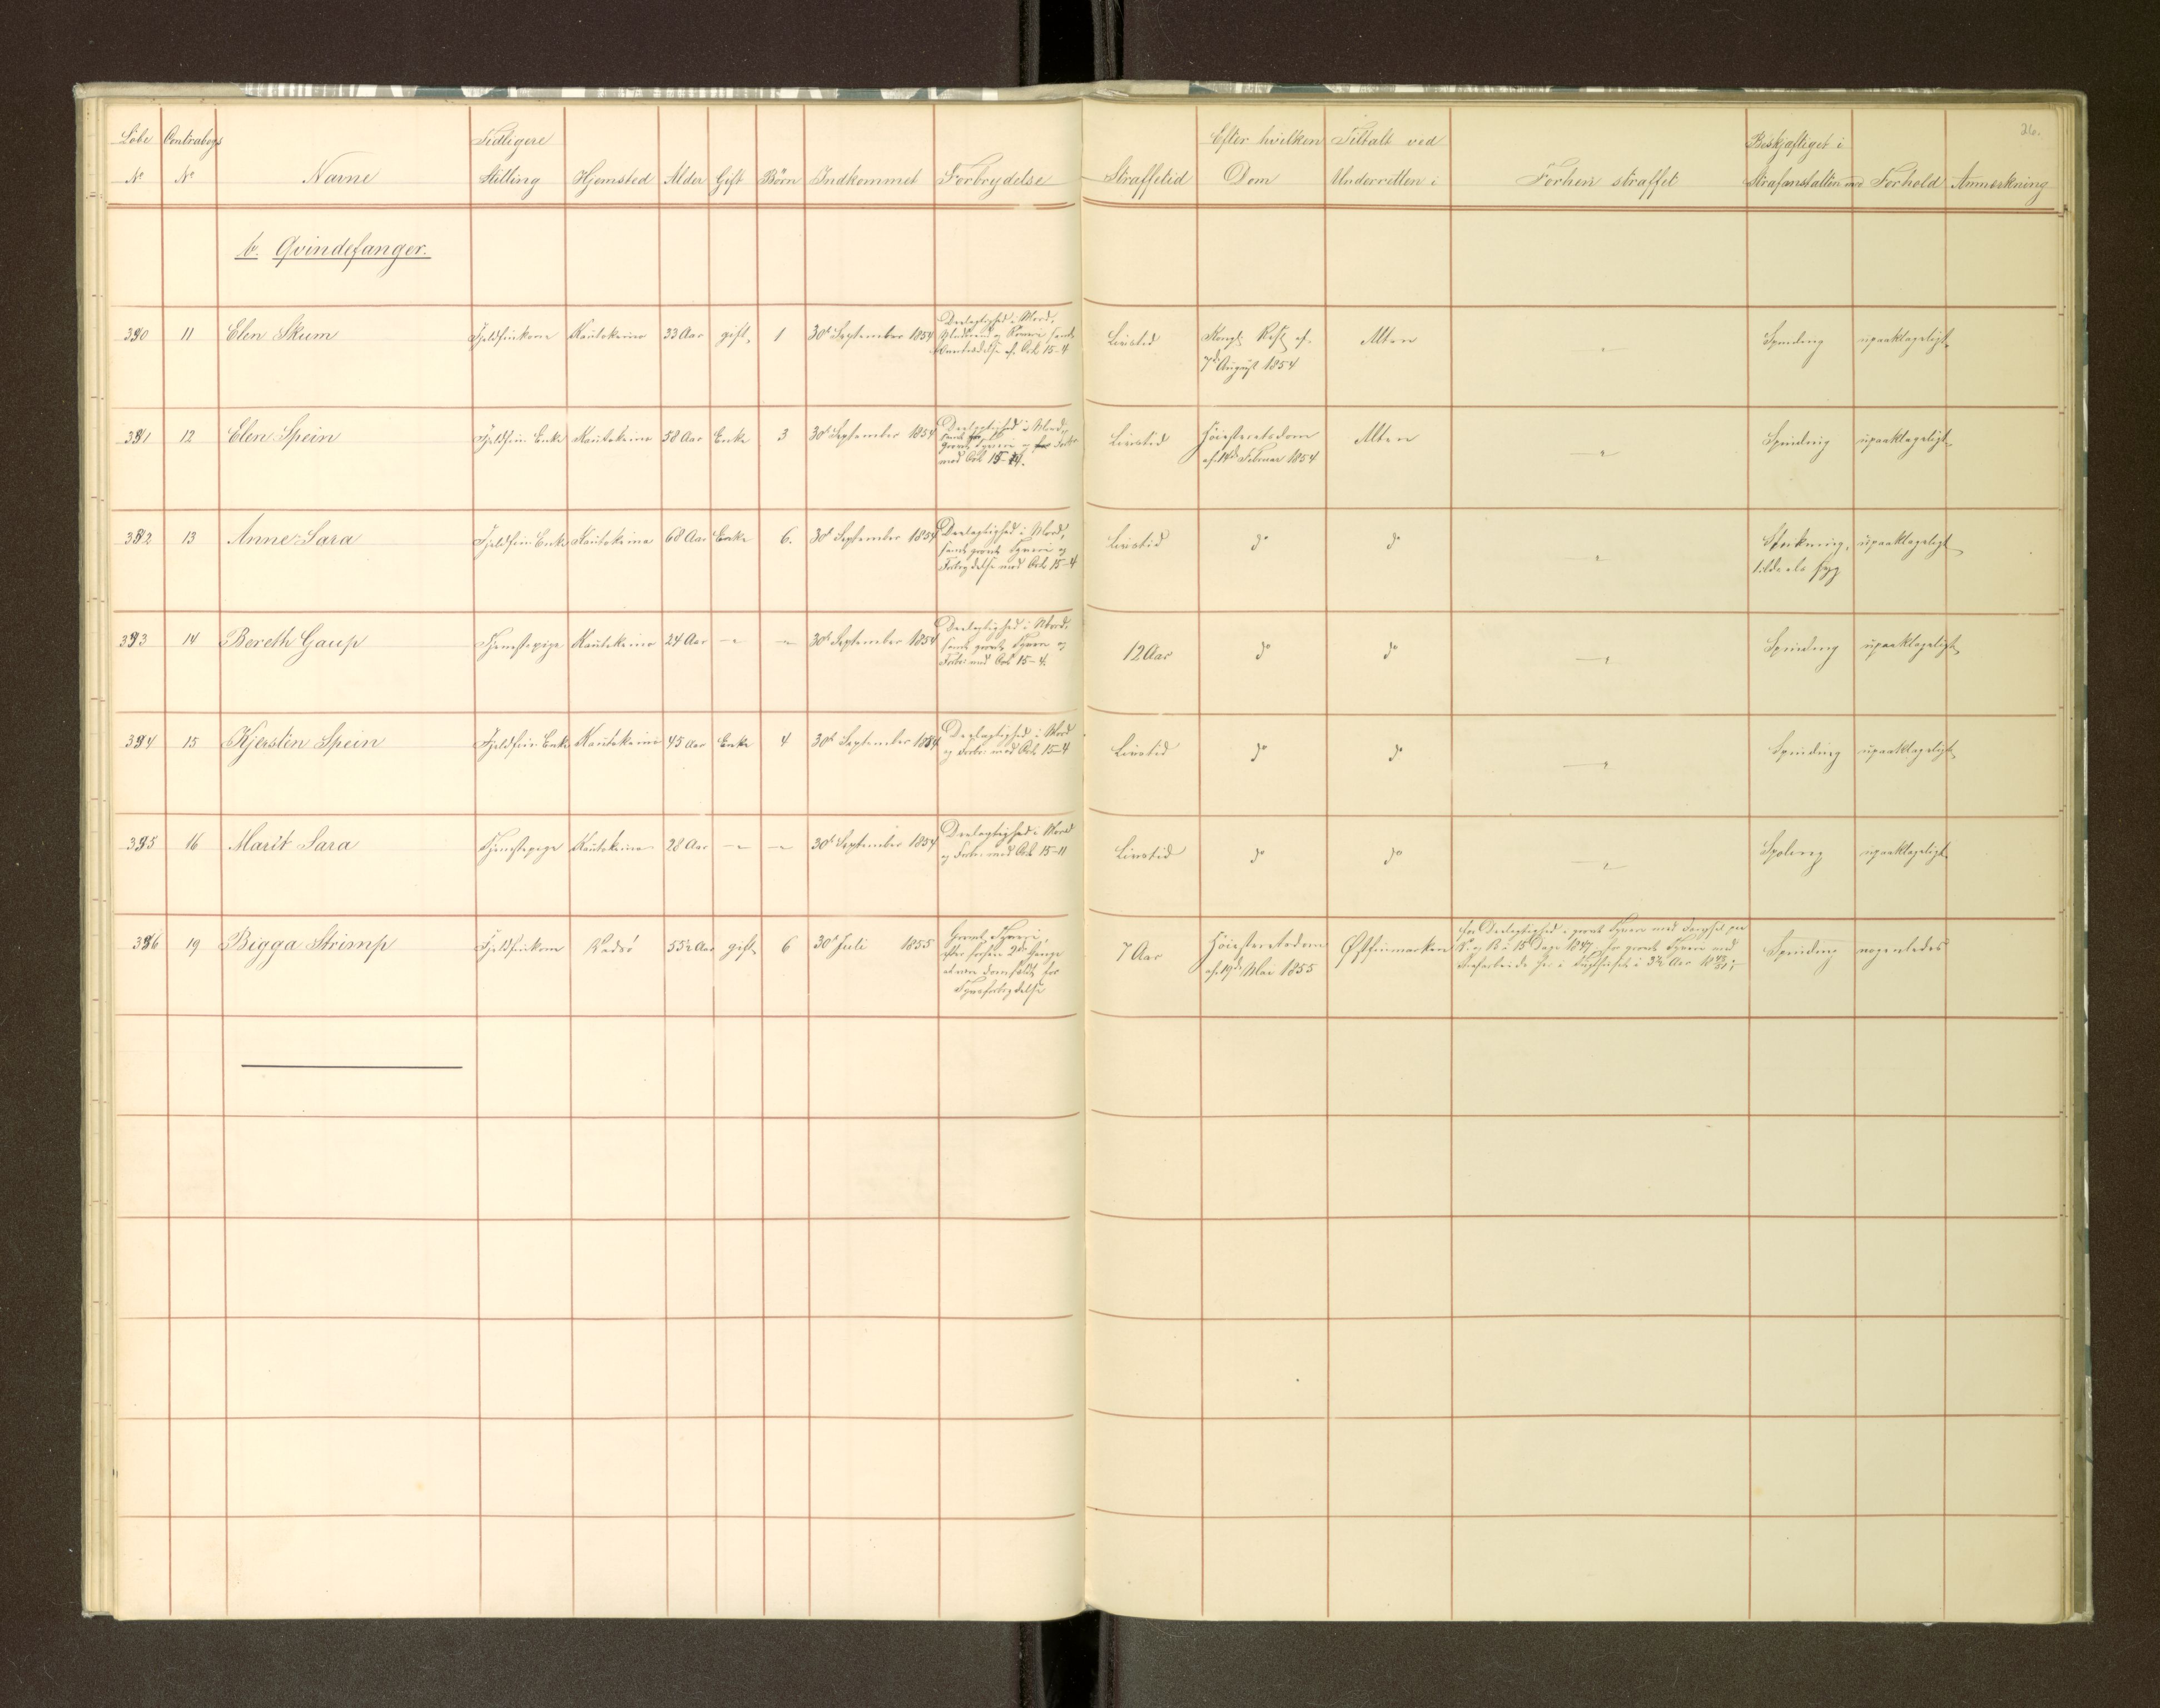 26.
Löbe Contrabogs Tidligere Efter hvilken Tiltalt ved Beskjæftiget i
No No Navne Stilling Hjemsted Alder Gift Börn Indkommet Forbrydelse Straffetid Dom Underretten i Forhen straffet Strafanstalten med Forhold Anmærkning
b. Qvindefanger.
390 11 Elen Skum Fjeldfinkone Kautokeino 33 Aar gift 1 30te September 1854 Deelagtighed i Mord, Livstid Kongl. Resl. af Alten " Spinding upaaklageligt
15-4 7de August 1854
391 12 Elen Spein Fjeldfin Enke Kautokeino 58 Aar Enke 3 30te September 1854 Deelagtighed i Mord, Livstid Höiesteretsdom Alten " Spinding upaaklageligt
samt grovt Tyveri og
mod Orb. 15-4. af 14de Februar 1854
392 13 Anne Sara Fjeldfin Enke Kautokeino 68 Aar Enke 6. 30te September 1854 Deelagtighed i Mord, Livstid do do " Strikning, upaaklageligt
samt grovt Tyveri og
Forbrydelse mod Orb. 15-4 tildeels syg
393 14 Bereth Gaup Tjenestepige Kautokeino 24 Aar " " 30te September 1854 Deelagtighed i Mord, 12 Aar do do " Spinding upaaklageligt
samt grovt Tyveri og
Forbr. mod Orb. 15-4.
394 15 Kjersten Spein Fjeldfin Enke Kautokeino 45 Aar Enke 4 30te September 1854 Deelagtighed i Mord Livstid do do " Spinding upaaklageligt
og Forbr. mod Orb. 15-4
395 16 Marit Sara Tjenestepige Kautokeino 28 Aar " " 30te September 1854 Deelagtighed i Mord Livstid do do " Spoling upaaklageligt
og Forbr. mod Orb. 15-11
396 19 Bigga Strimp Fjeldfinkone Vadsö 55½ Aar gift 6 30te Juli 1855 Grovt Tyveri 7 Aar Höiesteretsdom Østfinmarken for Deelagtighed i grovt Tyveri med Fængsel paa Spinding nogenledes
efter forhen 2de Gange af 19de Mai 1855 V. og B. i 15 Dage 1847, for grovt Tyveri med
at være domfældt for Strafarbeide i Tugthuset i 3½ Aar
Tyvsforbrydelse